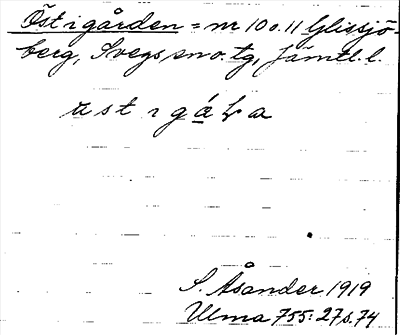 Öst i gården = nr 10 o. 11 Glissjö-
berg, Svegs sn o. tg, Jämtl. l.
S. Åsander 1919
Ulma 755: 27 s. 74